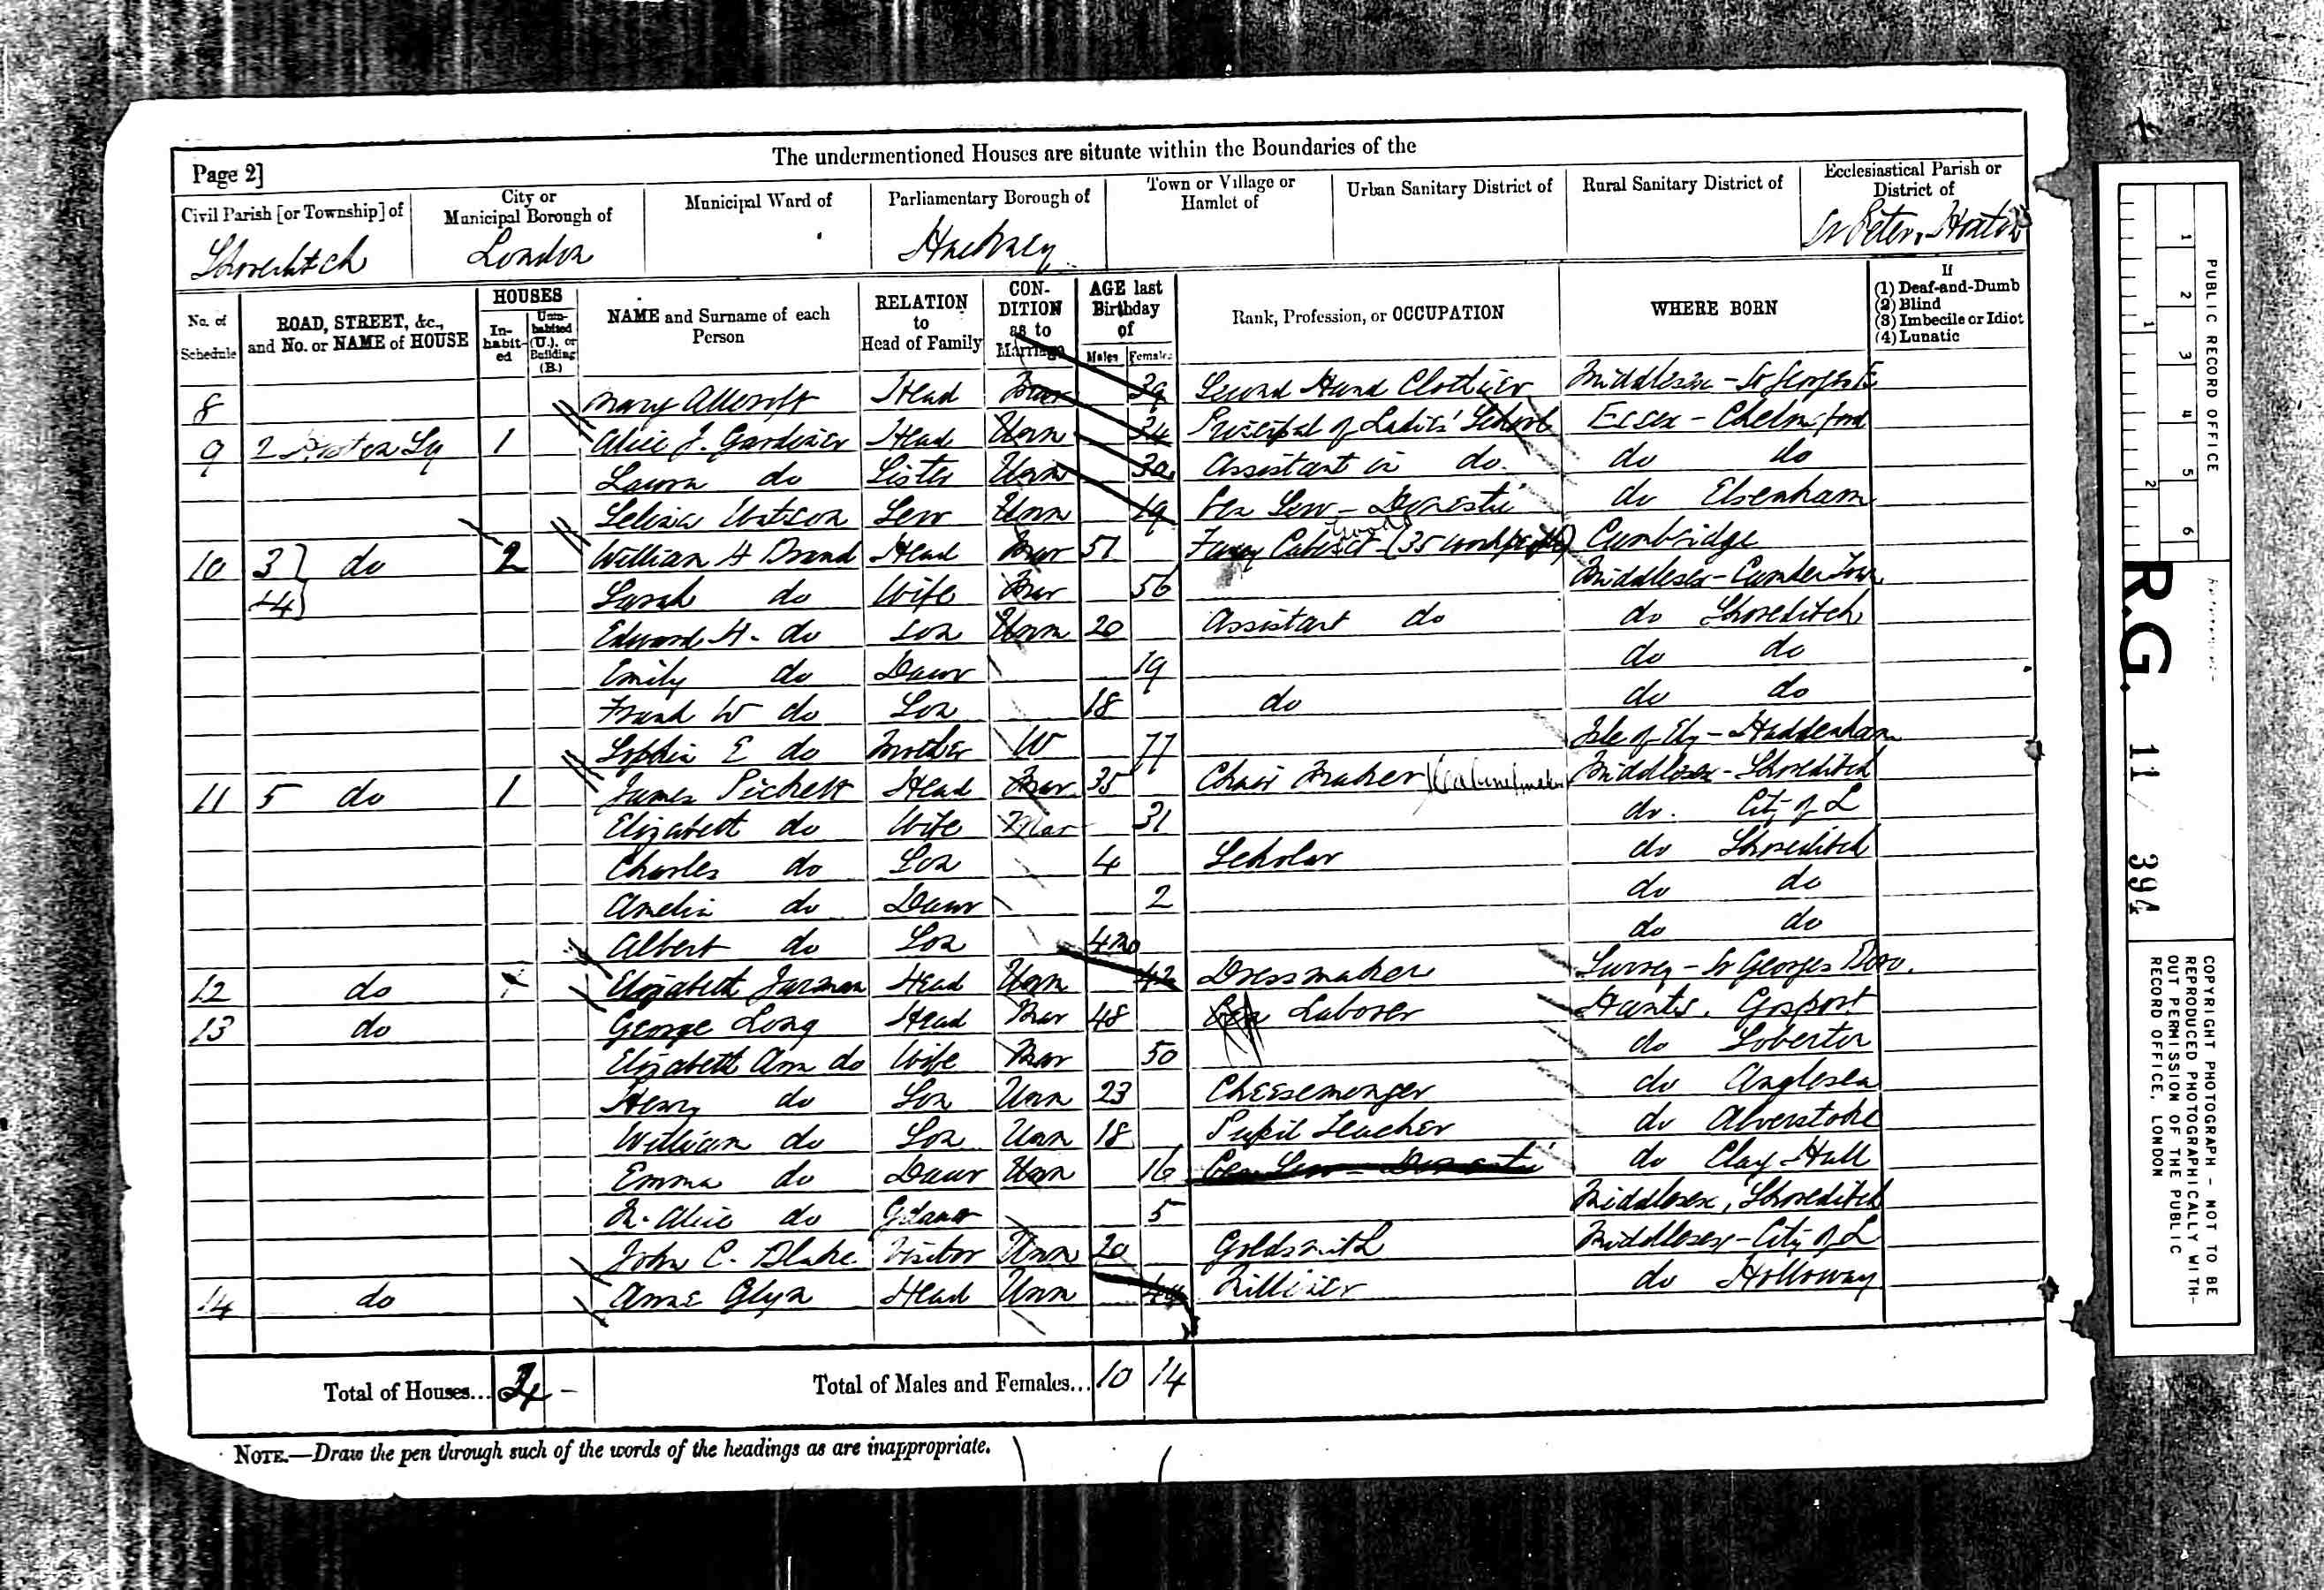 Page 2]
The undermentioned Houses are situate within the Boundaries of the
Civil Parish [or Township] of
City or Municipal Borough of
Municipal Ward of
Parliamentary Borough of
Town or Village or Hamlet of
Urban Sanitary District of
Rural Sanitary District of
Ecclesiastical Parish or District of
Shoreditch London Hackney St Peter, Hoxton
No. of Schedule
ROAD, STREET, &c., and No. or NAME of HOUSE
HOUSES
In-habit-ed
Unin-habited (U.), or Building (B.)
NAME and Surname of each Person
RELATION to Head of Family
CON-DITION as to Marriage
AGE last Birthday of
Males Females
Rank, Profession, or OCCUPATION
WHERE BORN
If
(1) Deaf-and-Dumb
(2) Blind
(3) Imbecile or Idiot
(4) Lunatic
8 Mary Head Mar 39 Second Hand Clothier Middlesex - St Georges E
9 2 Hoxton Sq 1 Alice J. Gardiner Head Unm 34 Principal of Ladies' School Essex - Chelmsford
Laura do Sister Unm 30 Assistant in do. do do
Watson Serv Unm 19 Gen Serv - Domestic do Elsenham
10 3 } do 2 William H Brand Head Mar 51 Fancy Cabinet Goods (35 workpeople) Cambridge
+4} Sarah do Wife Mar 56 Middlesex - Camden Town
Edward H. do Son Unm 20 Assistant do do Shoreditch
Emily do Daur 19 do do
Frank W do Son 18 do do do
Sophia E do Mother W 77 Isle of Ely - Haddenham
11 5 do 1 James Pickett Head Mar 35 Chair Maker (Cabinetmaker Middlesex - Shoreditch
Elizabeth do Wife Mar 31 do. City of L
Charles do Son 4 Scholar do Shoreditch
Amelia do Daur 2 do do
Albert do Son 4mo do do
12 do Elizabeth Jarman Head Unm 42 Dressmaker Surrey - St Georges Boro.
13 do George Long Head Mar 48 Gen Laborer Hants. Gosport
Elizabeth Ann do Wife Mar 50 do Soberton
Henry do Son Unm 23 Cheesemonger do Anglesea
William do Son Unm 18 Pupil Teacher do Alverstoke
Emma do Daur Unm 16 Gen Serv - Domestic do Clay Hall
Alice do Gdaur 5 Middlesex, Shoreditch
John C. Blake Visitor Unm 20 Goldsmith Middlesex - City of L
14 do Anne Glyn Head Unm 44 Milliner do Holloway
Total of Houses... 4 -
Total of Males and Females... 10 14
NOTE.—Draw the pen through such of the words of the headings as are inappropriate.
PUBLIC RECORD OFFICE
1 2 3 4 5 6
1 2
R.G. 11 / 394
COPYRIGHT PHOTOGRAPH - NOT TO BE
REPRODUCED PHOTOGRAPHICALLY WITH-
OUT PERMISSION OF THE PUBLIC
RECORD OFFICE, LONDON